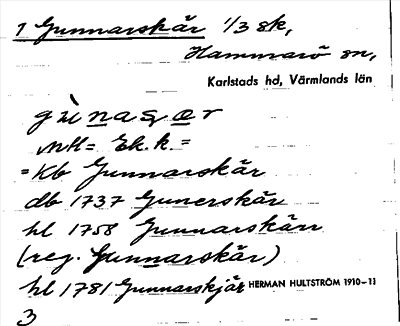 1 Gunnarskär 1/3 sk,
Hammarö sn,
Karlstads hd, Värmlands län
gùnaşǫr
MH = Ek.k. =
= Kb Gunnarskär
db 1737 Gunerskär
hl 1758 Gunnarskärr
(reg. Gunnarskär)
hl 1781 Gunnarskjär HERMAN HULTSTRÖM 1910–11
3